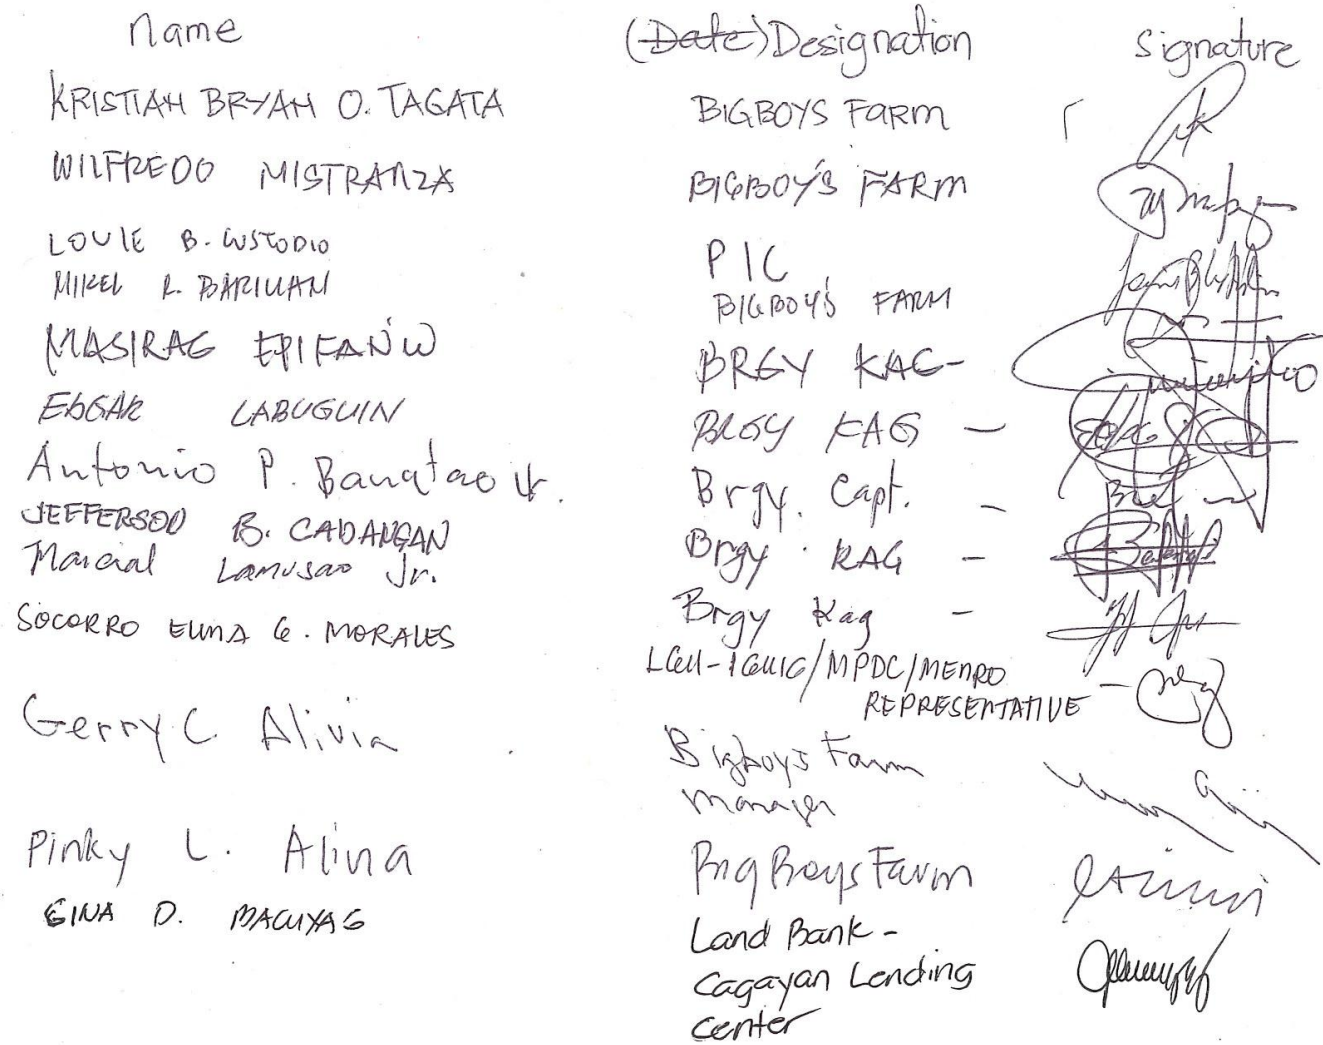 Name (Date) Designation Signature
KRISTIAN BRYAN O. TAGATA BIGBOYS FARM
WILFREDO MISTRANZA BIGBOY'S FARM
LOUIE B. CUSTODIO PIC
MIKEL R. BARIUAN BIGBOY'S FARM
MASIRAG EPIFANIO BRGY KAG-
EDGAR LABUGUIN BRGY KAG -
Antonio P. Banatao Jr. Brgy. Capt. -
JEFFERSON B. CADANGAN Brgy. KAG -
Marcial Lamusao Jr. Brgy Kag -
SOCORRO ELINA G. MORALES LGU-IGUIG/MPDC/MENRO
REPRESENTATIVE -
Gerry C. Alivia Bigboys Farm
Manager
Pinky L. Alina Big Boys Farm
GINA D. MACUYAG Land Bank -
Cagayan Lending
Center